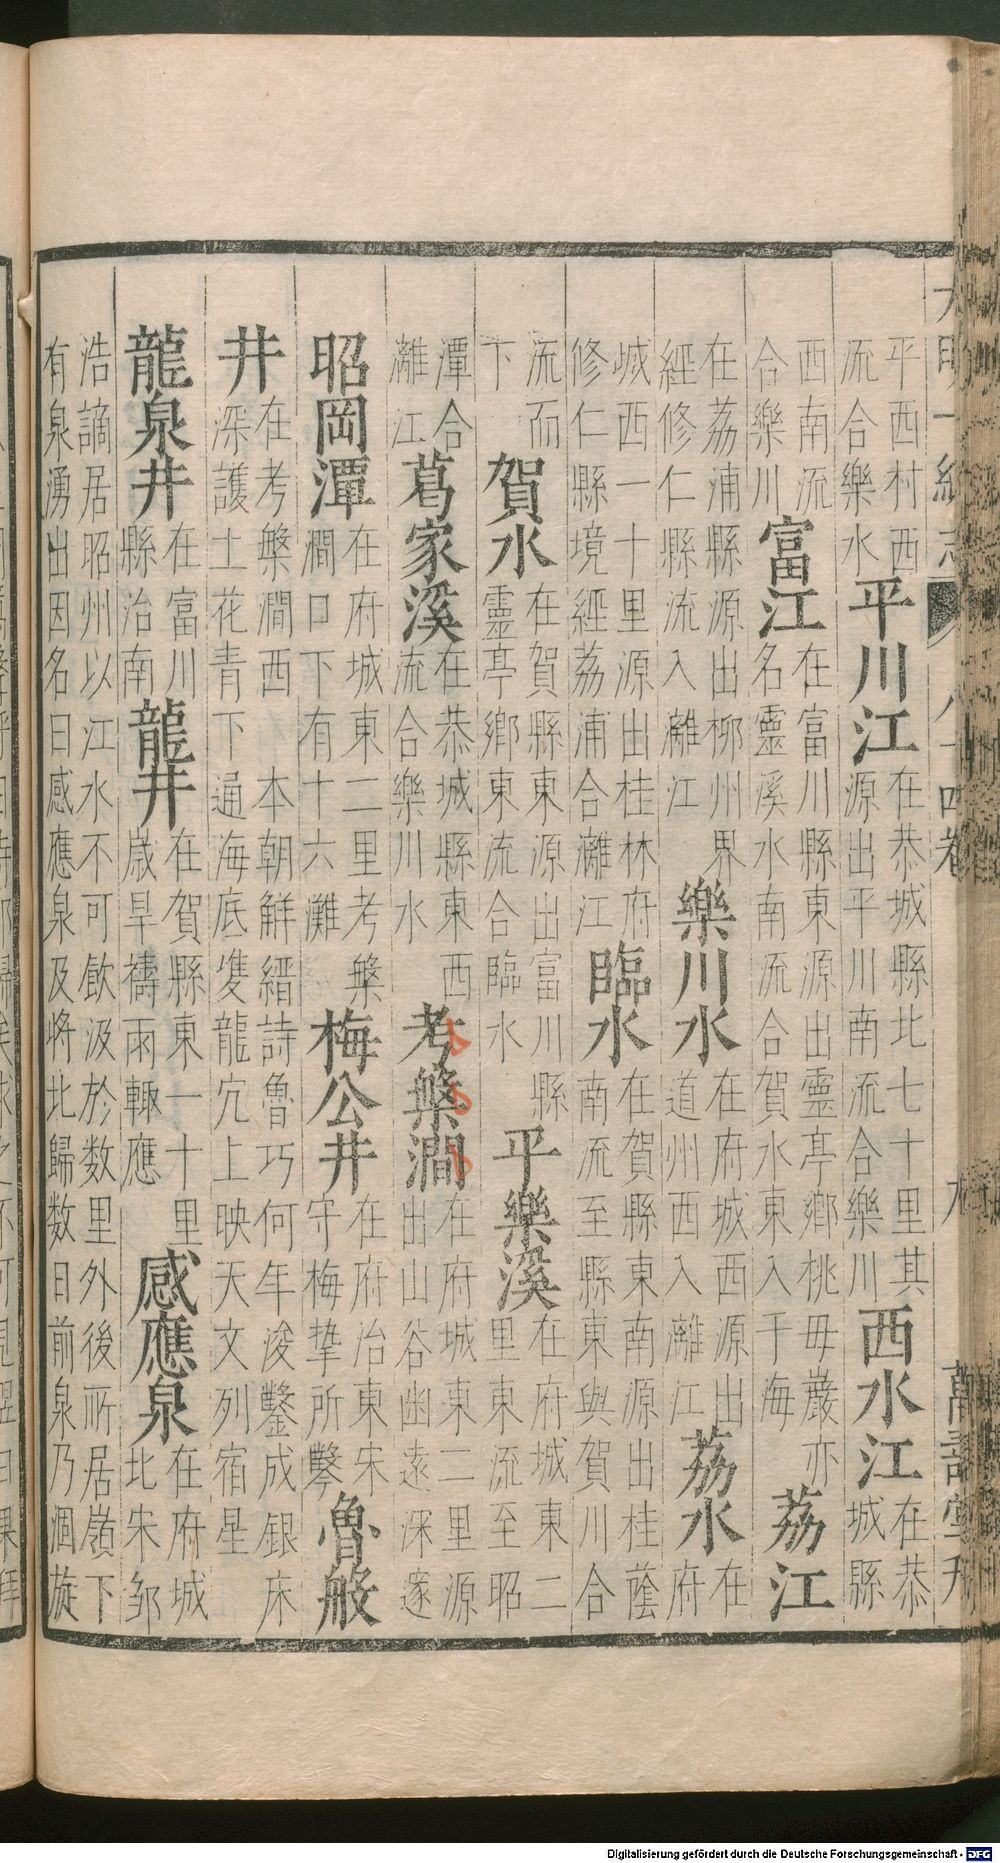 大明一統志 八十四卷 九 萬壽堂刋
平西村西
流合樂水
平川江
在恭城縣北七十里其
源出平川南流合樂川
西水江
在恭
城縣
西南流
合樂川
富江
在富川縣東源出靈亭鄉桃母巖亦
名靈溪水南流合賀水東入于海
荔江
在荔浦縣源出柳州界
經修仁縣流入灕江
樂川水
在府城西源出
道州西入灕江
荔水
在
府
城西一十里源出桂林府
修仁縣境經荔浦合灕江
臨水
在賀縣東南源出桂蔭
南流至縣東與賀川合
流而
下
賀水
在賀縣東源出富川縣
靈亭鄉東流合臨水
平樂溪
在府城東二
里東流至昭
潭合
灕江
葛家溪
在恭城縣東西
流合樂川水
考槃澗
在府城東二里源
出山谷幽遠深邃
昭岡潭
在府城東二里考槃
澗口下有十六灘
梅公井
在府治東宋
守梅摯所鑿
魯般
井
在考槃澗西 本朝解縉詩魯巧何年浚鑿成銀床
深護土花青下通海底雙龍穴上映天文列宿星
龍泉井
在富川
縣治南
龍井
在賀縣東一十里
歲旱禱雨輙應
感應泉
在府城
北宋邹
浩謫居昭州以江水不可飲汲於数里外後所居嶺下
有泉湧出因名曰感應泉及將北歸数日前泉乃涸旋
Digitalisierung gefördert durch die Deutsche Forschungsgemeinschaft - DFG